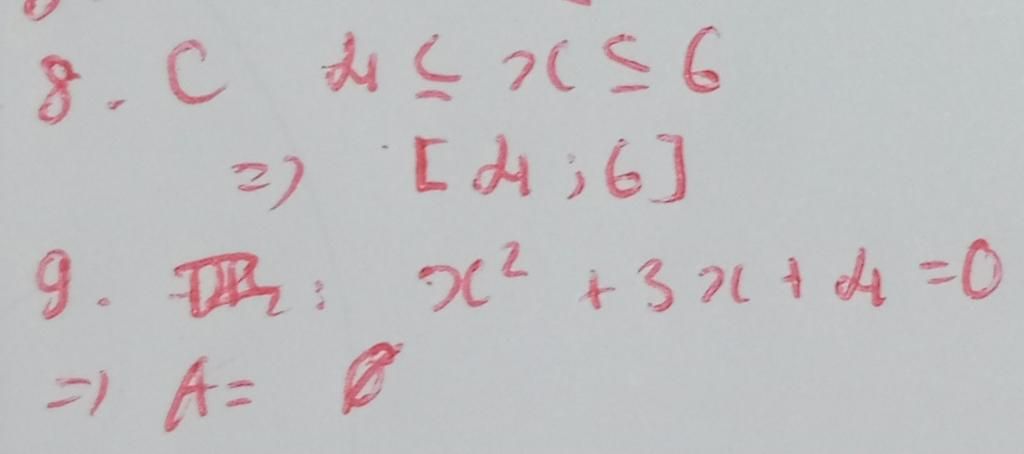 8. C 4 ≤ x ≤ 6
=> [4; 6]
9. : x² + 3x + 4 = 0
=> A = Ø